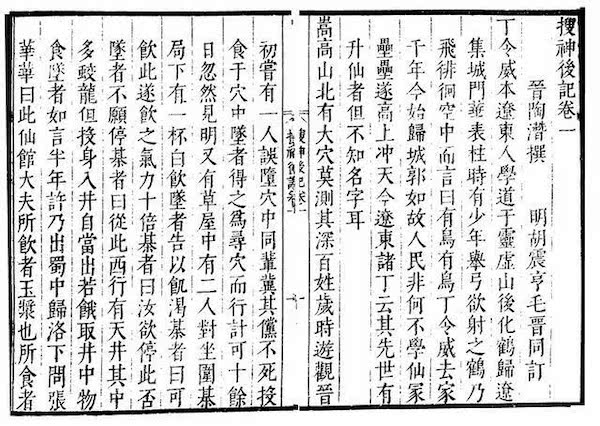 搜神後記卷一
晉陶潛撰 明胡震亨毛晉同訂
丁令威本遼東人學道于靈虛山後化鶴歸遼
集城門華表柱時有少年舉弓欲射之鶴乃
飛徘徊空中而言曰有鳥有鳥丁令威去家
千年今始歸城郭如故人民非何不學仙冢
壘壘遂高上冲天今遼東諸丁云其先世有
升仙者但不知名字耳
嵩高山北有大穴莫測其深百姓歲時遊觀晉
搜神後記卷一
初嘗有一人誤墮穴中同輩冀其儻不死投
食于穴中墜者得之爲尋穴而行計可十餘
日忽然見明又有草屋中有二人對坐圍棊
局下有一杯白飲墜者告以飢渴棊者曰可
飲此遂飲之氣力十倍棊者曰汝欲停此否
墜者不願停棊者曰從此西行有天井其中
多蛟龍但投身入井自當出若餓取井中物
食墜者如言半年許乃出蜀中歸洛下問張
華華曰此仙館大夫所飲者玉漿也所食者